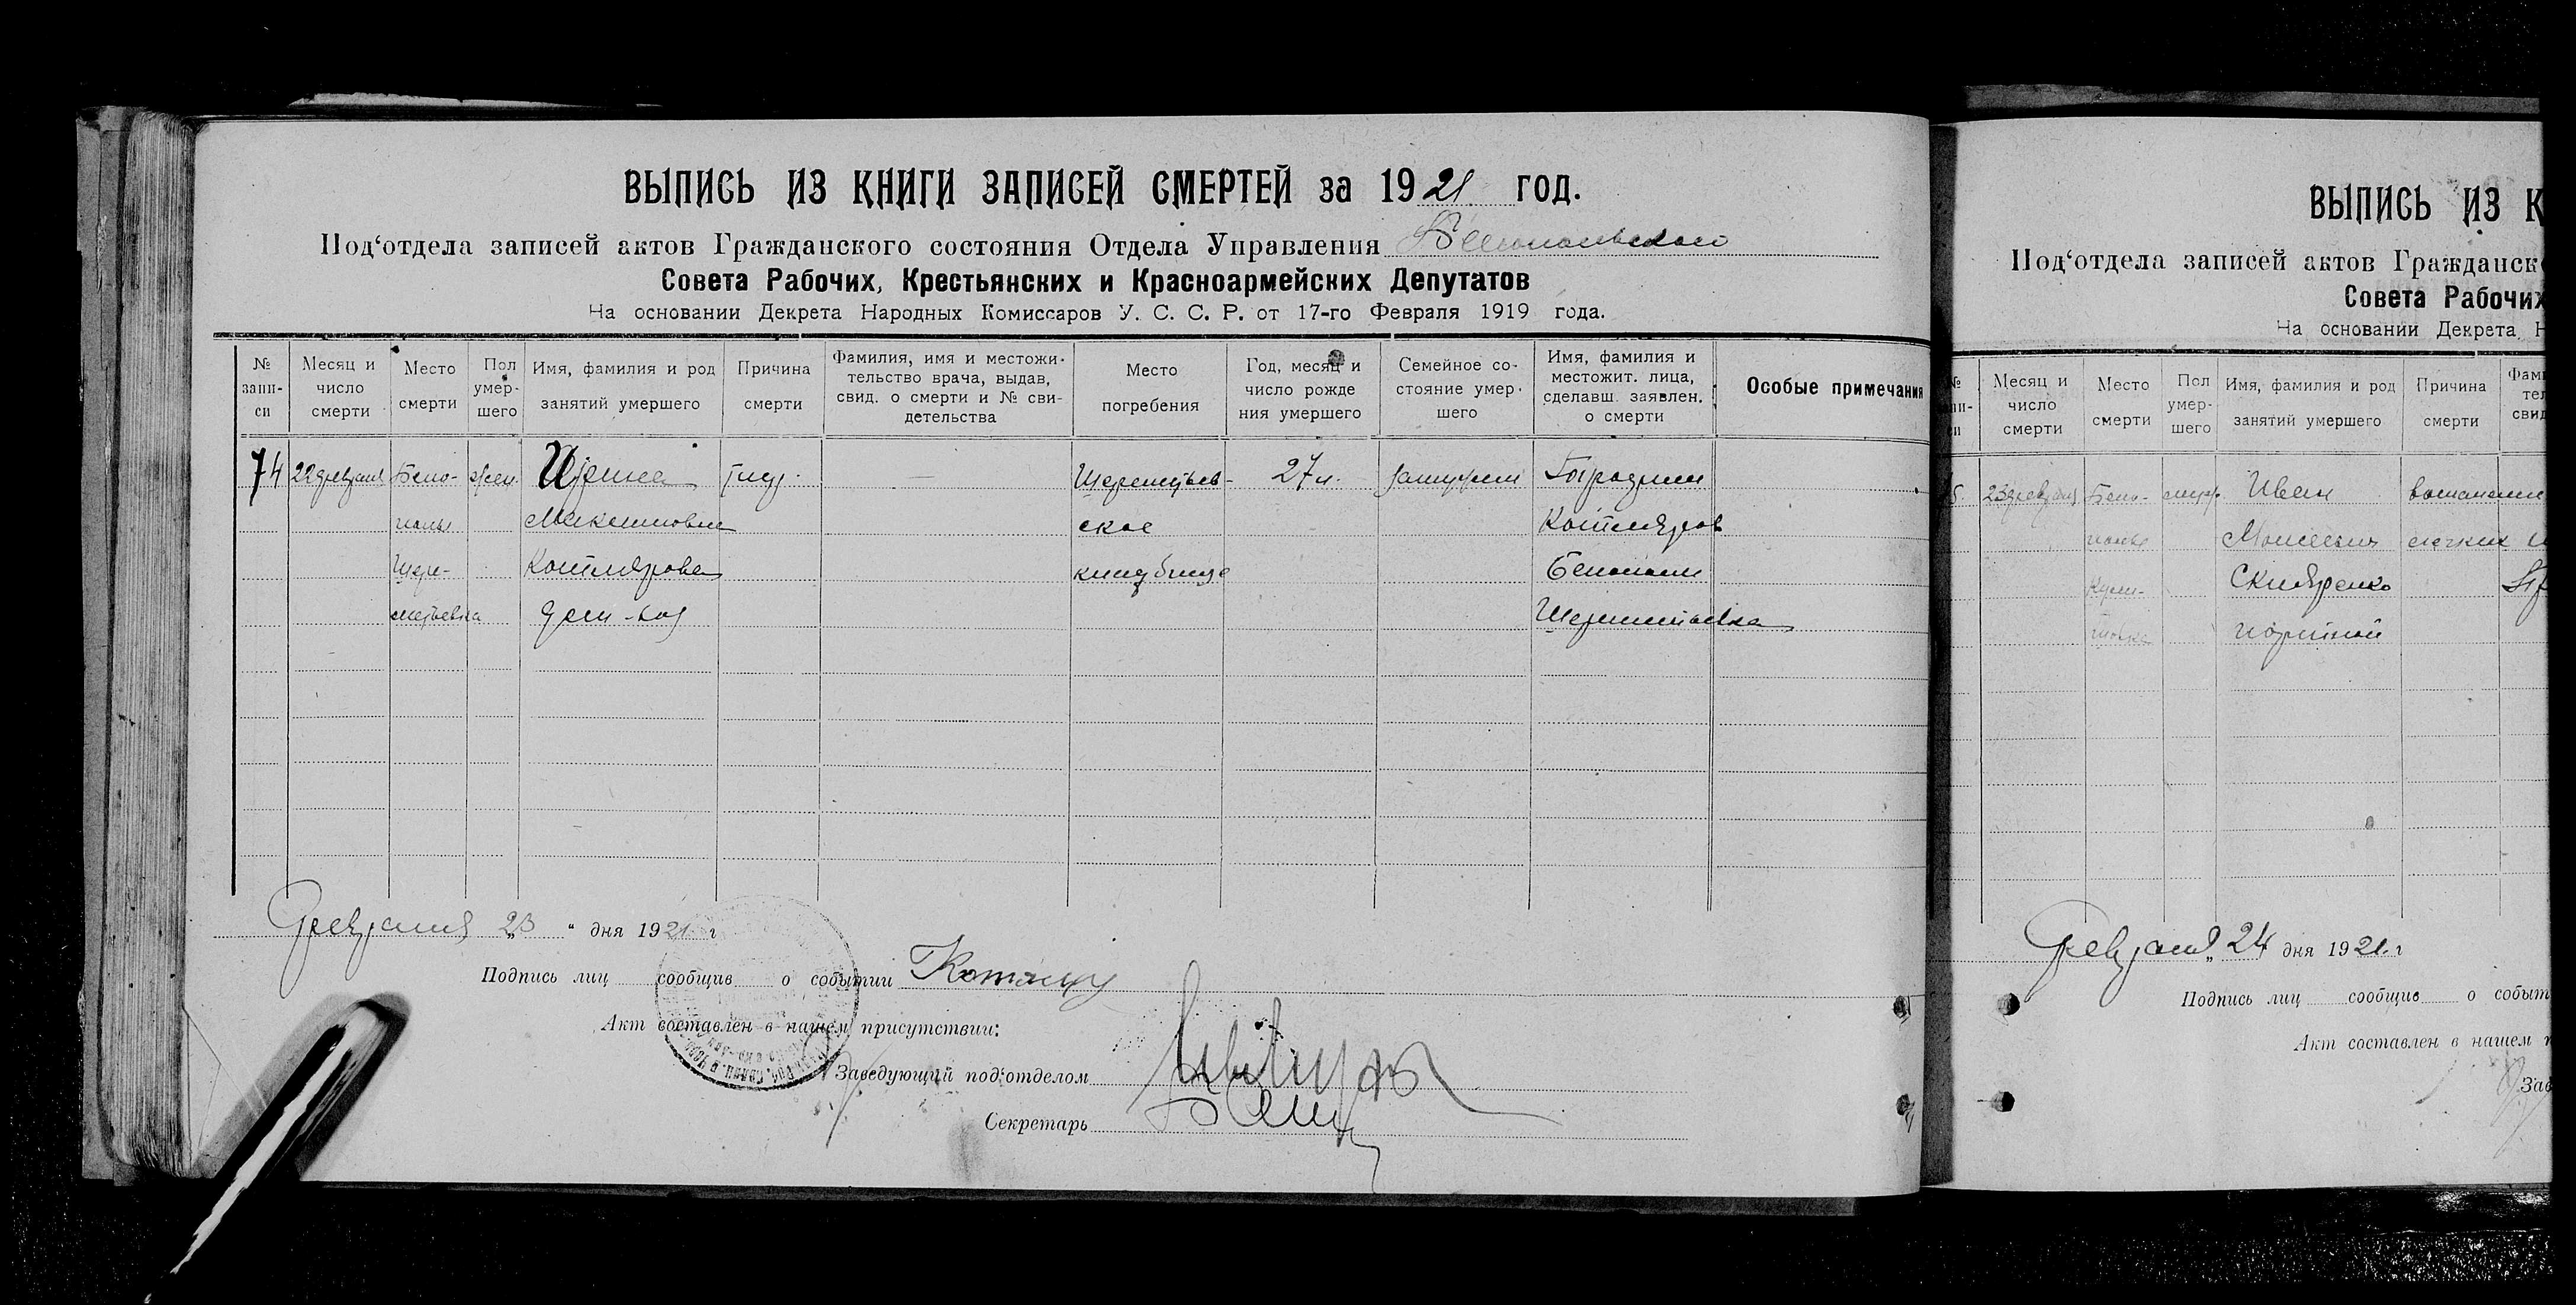 ВЫПИСЬ ИЗ КНИГИ ЗАПИСЕЙ СМЕРТЕЙ за 1921 год.
Под‘отдела записей актов Гражданского состояния Отдела Управления
Совета Рабочих, Крестьянских и Красноармейских Депутатов
На основании Декрета Народных Комиссаров У. С. С. Р. от 17-го Февраля 1919 года.
№ запи-си
Месяц и число смерти
Место смерти
Пол умер-шего
Имя, фамилия и род занятий умершего
Причина смерти
Фамилия, имя и местожи-тельство врача, выдав, свид. о смерти и № сви-детельства
Место погребения
Год, месяц и число рожде ния умершего
Семейное со-стояние умер-шего
Имя, фамилия и местожит. лица, сделавш. заявлен. о смерти
Особые примечания
74 22 февраля Бело- жен Ирина Тиф. — Шереметьев- 27 л.
полье Максимовна ское Котлярова
Шере- Котлярова кладбище
метьевка Шереметьевка
Февраля 23 " дня 1921 г
Подпись лиц сообщив о событии
Акт составлен в нашем присутствии:
Заведующий под‘отделом
Секретарь
ВЫПИСЬ ИЗ К
Под‘отдела записей актов Гражданск
Совета Рабочих
На основании Декрета Н
Месяц и число смерти
Место смерти
Пол умер-шего
Имя, фамилия и род занятий умершего
Причина смерти
23 февраля Бело- муж. Иван
полье Моисеевич легких
Скляренко
портной
Февраля 24 дня 1921 г
Подпись лиц сообщив о событ
Акт составлен в нашем п
Зав